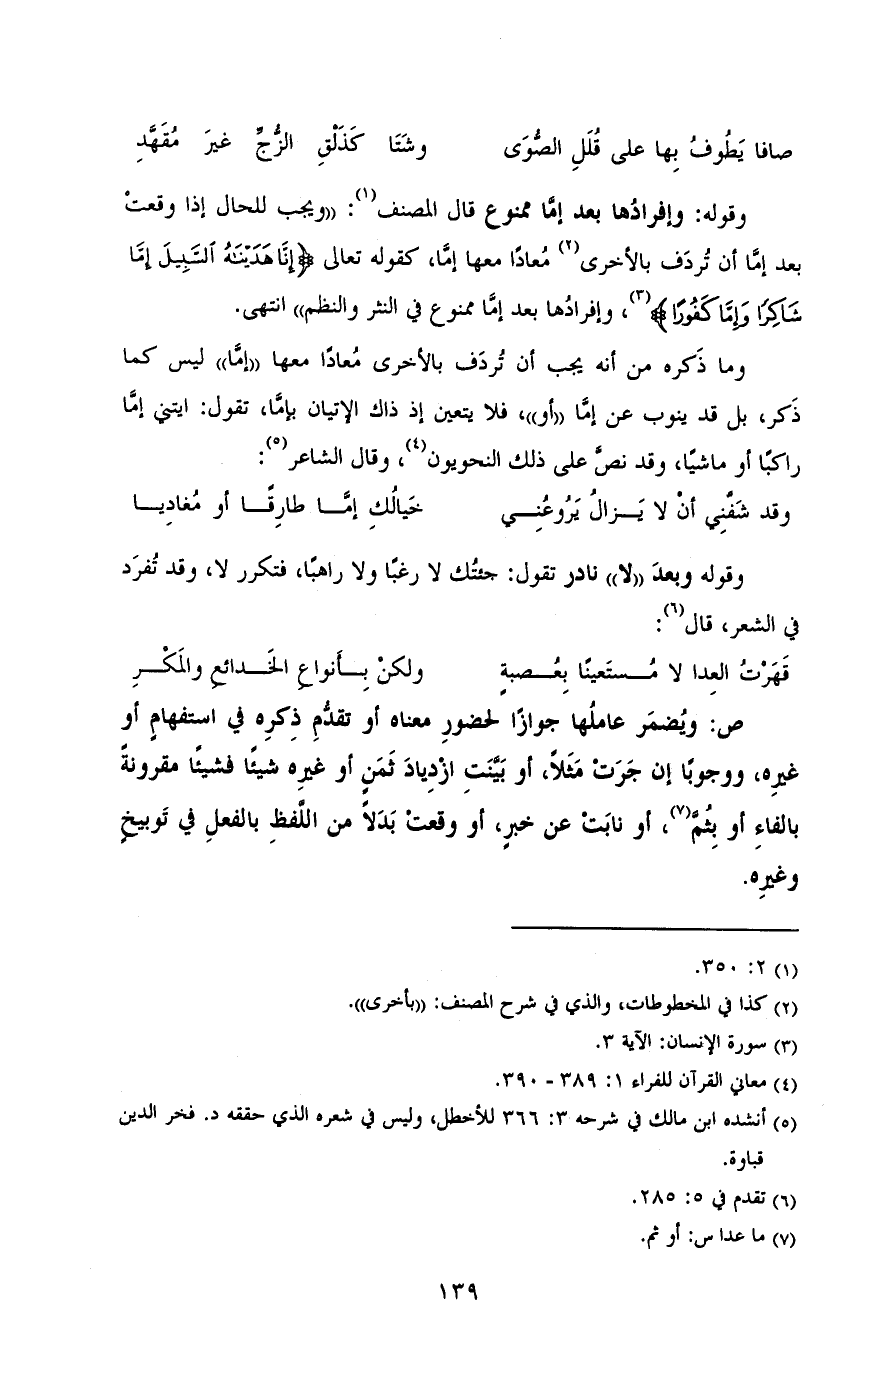 صافا يَطُوفُ بِها على قُلَلِ الصُّوَى وشَتَا كَذَلْقِ الزُّجِّ غيرَ مُقَهَّدِ
وقوله: وإفرادُها بعد إمَّا ممنوع قال المصنف(١): «ويجب للحال إذا وقعتْ
بعد إمَّا أن تُردَف بالأخرى(٢) مُعادًا معها إمَّا، كقوله تعالى ﴿إِنَّا هَدَيْنَٰهُ ٱلسَّبِيلَ إِمَّا
شَاكِرًا وَإِمَّا كَفُورًا﴾(٣)، وإفرادُها بعد إمَّا ممنوع في النثر والنظم» انتهى.
وما ذَكره من أنه يجب أن تُردَف بالأخرى مُعادًا معها «إمَّا» ليس كما
ذَكر، بل قد ينوب عن إمَّا «أو»، فلا يتعين إذ ذاك الإتيان بإمَّا، تقول: ايتني إمَّا
راكبًا أو ماشيًا، وقد نصَّ على ذلك النحويون(٤)، وقال الشاعر(٥):
وقد شَفَّنِي أنْ لا يَـزالُ يَرُوعُنِـي خَيالُكِ إمَّـا طارِقًـا أو مُغادِيـا
وقوله وبعدَ «لا» نادر تقول: جئتُك لا رغبًا ولا راهبًا، فتكرر لا، وقد تُفرَد
في الشعر، قال(٦):
قَهَرْتُ العِدا لا مُـستَعينًا بِعُـصبةٍ ولكنْ بِـأَنواعِ الخَـدائعِ والمَكْـرِ
ص: ويُضمَر عاملُها جوازًا لحضورِ معناه أو تقدُّمِ ذِكرِه في استفهامٍ أو
غيرِه، ووجوبًا إن جَرَتْ مَثَلاً، أو بَيَّنَتِ ازْدِيادَ ثَمَنٍ أو غيرِه شيئًا فشيئًا مقرونةً
بالفاءِ أو بِثُمَّ(٧)، أو نابَتْ عن خبرٍ، أو وقعتْ بَدَلاً من اللَّفظِ بالفعلِ في تَوبيخٍ
وغيرِه.
(١) ٢: ٣٥٠.
(٢) كذا في المخطوطات، والذي في شرح المصنف: «بأخرى».
(٣) سورة الإنسان: الآية ٣.
(٤) معاني القرآن للفراء ١: ٣٨٩ - ٣٩٠.
(٥) أنشده ابن مالك في شرحه ٣: ٣٦٦ للأخطل، وليس في شعره الذي حققه د. فخر الدين
قباوة.
(٦) تقدم في ٥: ٢٨٥.
(٧) ما عدا س: أو ثم.
١٣٩